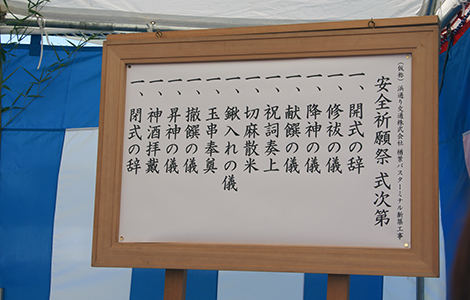 （仮称）浜通り交通株式会社 楢葉バスターミナル新築工事
安全祈願祭 式次第
一、開式の辞
一、修祓の儀
一、降神の儀
一、献饌の儀
一、祝詞奏上
一、切麻散米
一、鍬入れの儀
一、玉串奉奠
一、撤饌の儀
一、昇神の儀
一、神酒拝戴
一、閉式の辞